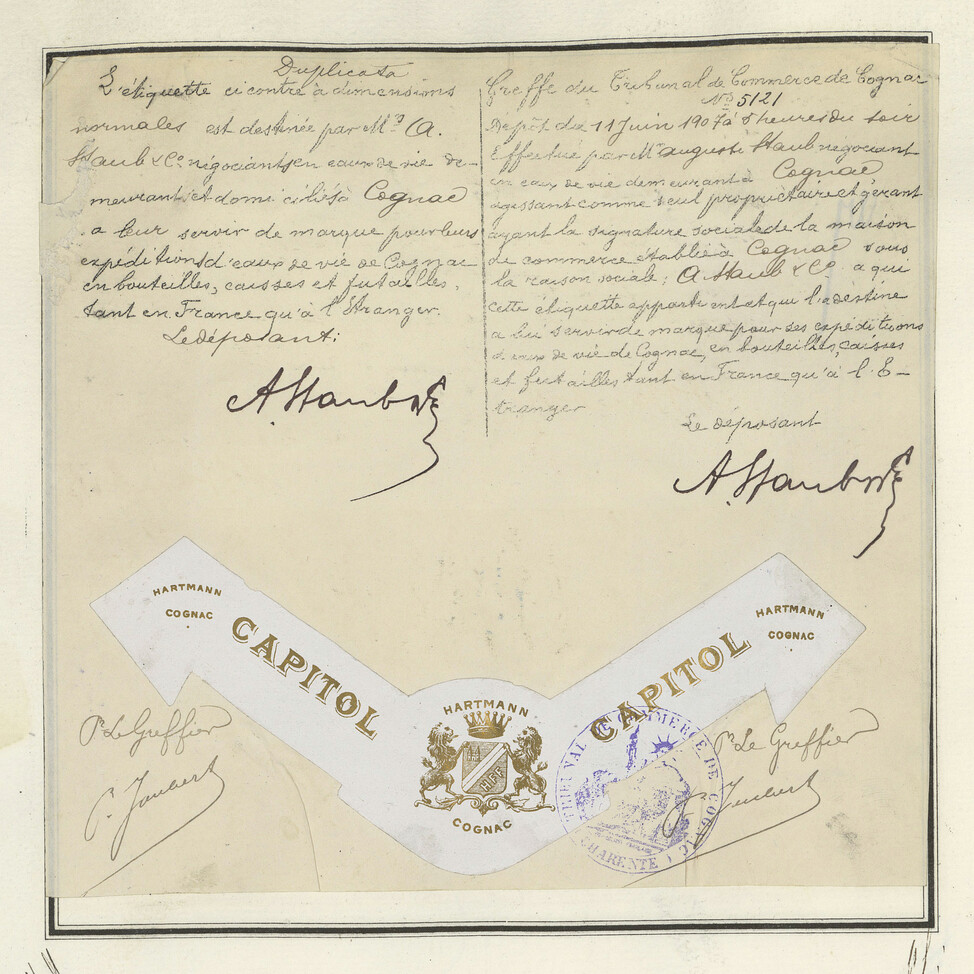 Duplicata
L'étiquette ci contre à dimensions
normales est destinée par Mrs A.
Staub & Co négociants en eaux de vie de-
meurant et domiciliés à Cognac
a leur servir de marque pour leurs
expéditions d'eaux de vie de Cognac
en bouteilles, caisses et futailles,
tant en France qu'à l'Etranger.
Le déposant:
A Staub & Co
Greffe du Tribunal de Commerce de Cognac
No 5121
Dépôt du 11 Juin 1907 à 5 heures du soir
Effectué par Mr Auguste Staub négociant
en eaux de vie demeurant à Cognac
agissant comme seul propriétaire et gérant
ayant la signature sociale de la maison
de commerce établie à Cognac sous
la raison sociale: A Staub & Co. a qui
cette étiquette appartient et qui la destine
a lui servir de marque pour ses expéditions
d'eaux de vie de Cognac, en bouteilles, caisses
et futailles tant en France qu'à l'E-
tranger
Le déposant
A. Staub & Co
HARTMANN
COGNAC
CAPITOL
HARTMANN
HFF
COGNAC
CAPITOL
HARTMANN
COGNAC
Pr Le Greffier
P. Joubert
TRIBUNAL DE COMMERCE DE COGNAC
CHARENTE
Pr Le Greffier
P. Joubert